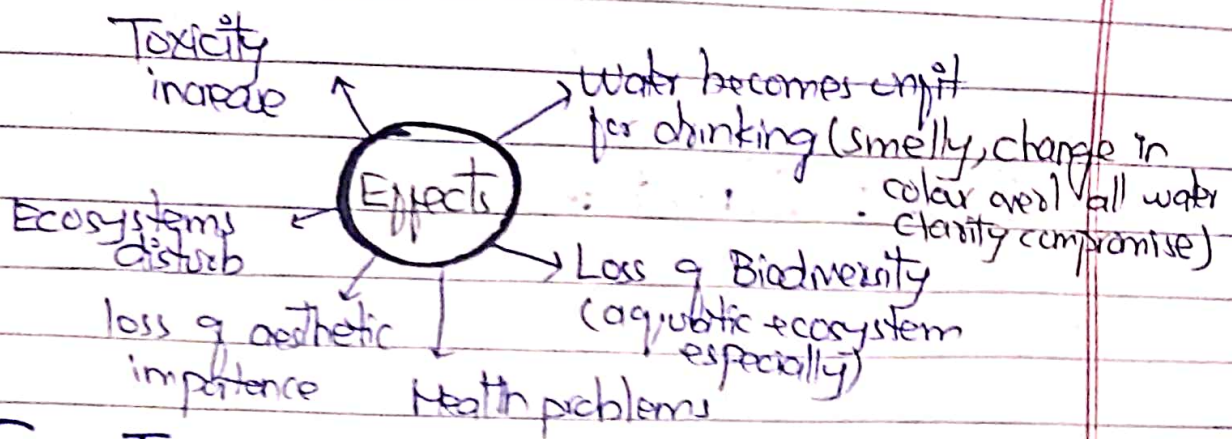 Toxicity
increase
Water becomes unfit
for drinking (smelly, change in
colour overall water
clarity compromise)
Effects
Ecosystems
disturb
Loss of Biodiversity
(aquatic ecosystem
especially)
loss of aesthetic
importence
Health problems